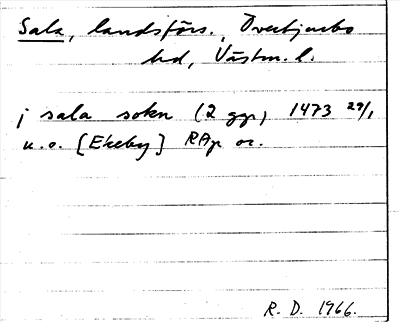 Sala, landsförs., Övertjurbo
hd, Västm. l.
j sala sokn (2 ggr) 1473 29/1
u.o. [Ekeby] RAp or.
R. D. 1966.